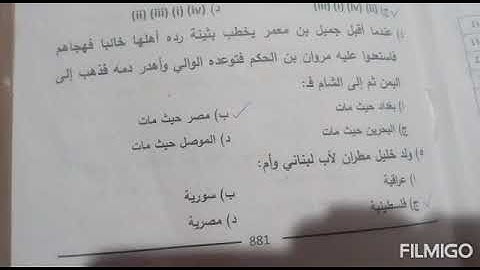 ج) (ii) (iv) (i) (iii) د) (iv) (i) (iii) (ii)
) عندما أقبل جميل بن معمر يخطب بثينة رده أهلها خائبا فهجاهم
فاستعدوا عليه مروان بن الحكم فتوعده الوالي وأهدر دمه فذهب إلى
اليمن ثم إلى الشام ف:
ا) بغداد حيث مات ب) مصر حيث مات
ج) البحرين حيث مات د) الموصل حيث مات
ه) ولد خليل مطران لأب لبناني وأم:
ا) عراقية ب) سورية
ج) فلسطينية د) مصرية
881
FILMIGO